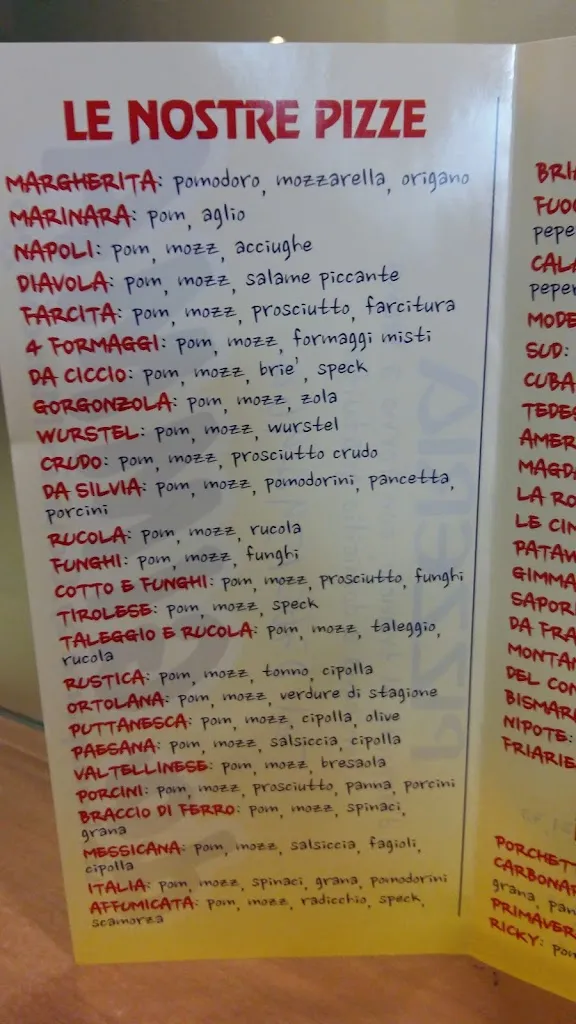 LE NOSTRE PIZZE
MARGHERITA: pomodoro, mozzarella, origano
MARINARA: pom, aglio
NAPOLI: pom, mozz, acciughe
DIAVOLA: pom, mozz, salame piccante
FARCITA: pom, mozz, prosciutto, farcitura
4 FORMAGGI: pom, mozz, formaggi misti
DA CICCIO: pom, mozz, brie', speck
GORGONZOLA: pom, mozz, zola
WURSTEL: pom, mozz, wurstel
CRUDO: pom, mozz, prosciutto crudo
DA SILVIA: pom, mozz, pomodorini, pancetta,
porcini
RUCOLA: pom, mozz, rucola
FUNGHI: pom, mozz, funghi
COTTO E FUNGHI: pom, mozz, prosciutto, funghi
TIROLESE: pom, mozz, speck
TALEGGIO E RUCOLA: pom, mozz, taleggio,
rucola
RUSTICA: pom, mozz, tonno, cipolla
ORTOLANA: pom, mozz, verdure di stagione
PUTTANESCA: pom, mozz, cipolla, olive
PAESANA: pom, mozz, salsiccia, cipolla
VALTELLINESE: pom, mozz, bresaola
PORCINI: pom, mozz, prosciutto, panna, porcini
BRACCIO DI FERRO: pom, mozz, spinaci,
grana
MESSICANA: pom, mozz, salsiccia, fagioli,
cipolla
ITALIA: pom, mozz, spinaci, grana, pomodorini
AFFUMICATA: pom, mozz, radicchio, speck,
scamorza
BRI
FUO
pepe
CALA
peper
MODE
SUD:
CUBA
TEDES
AMER
MAGD
LA RO
LE CIN
PATAW
GIMMA
SAPOR
DA FRA
MONTAN
DEL CON
BISMAR
NIPOTE:
FRIARIE
PORCHETT
CARBONAR
grana, pan
PRIMAVER
RICKY: pom